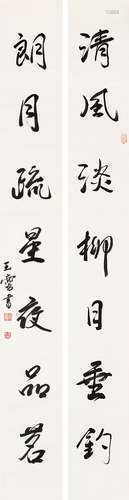 清風淡柳日垂釣
朗月疏星夜品茗
王雪書